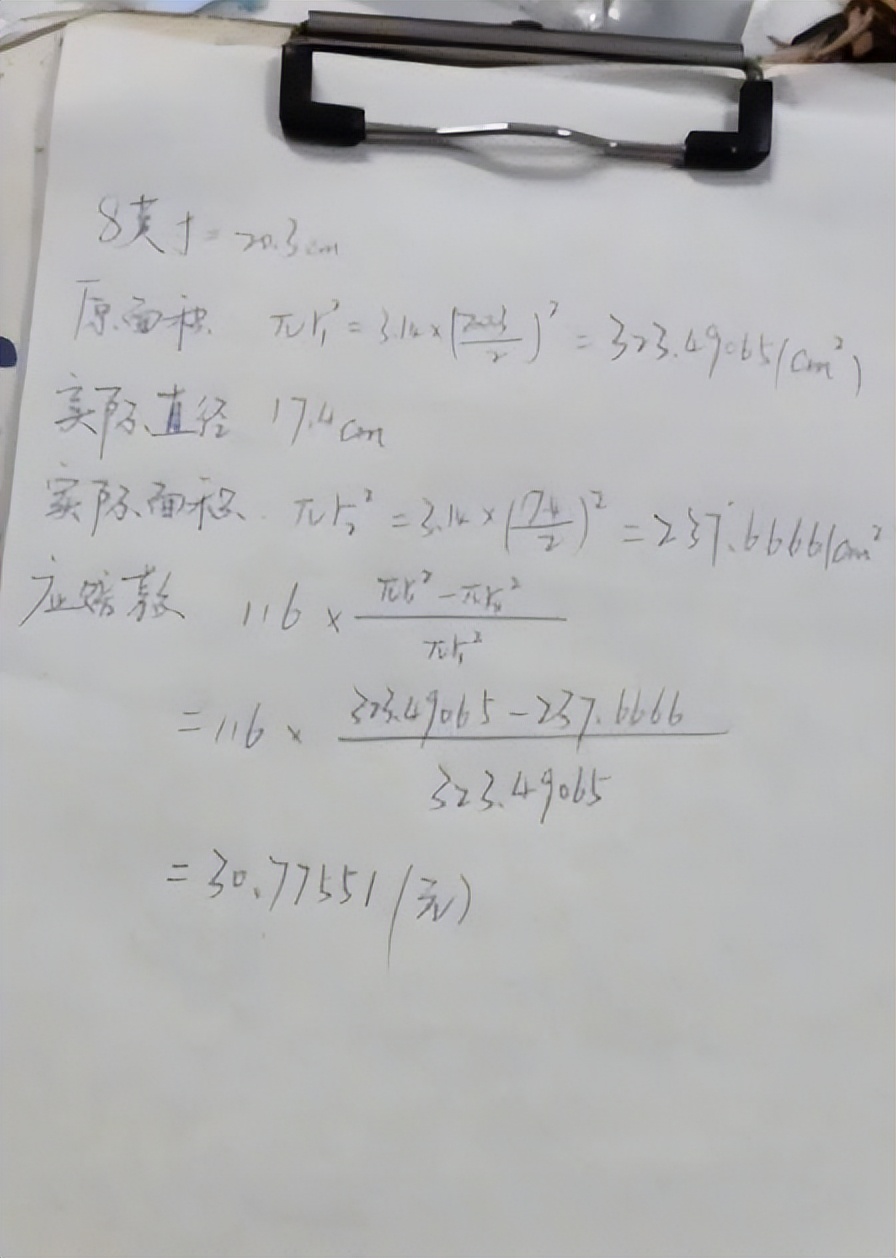 8英寸=20.3cm
原面积 πr₁²=3.14×(20.3/2)²=323.49065(cm²)
实际直径 17.4cm
实际面积 πr₂²=3.14×(17.4/2)²=237.6666(cm²
应赔款 116×(πr₁²-πr₂²)/πr₁²
=116×(323.49065-237.6666)/323.49065
=30.77551(元)